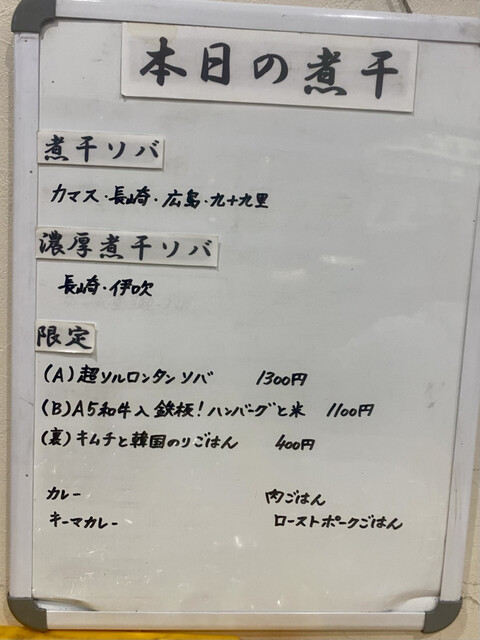 本日の煮干
煮干ソバ
カマス・長崎・広島・九十九里
濃厚煮干ソバ
長崎・伊吹
限定
(A)超ソルロンタンソバ 1300円
(B)A5和牛入鉄板!ハンバーグと米 1100円
(裏)キムチと韓国のりごはん 400円
カレー 肉ごはん
キーマカレー ローストポークごはん